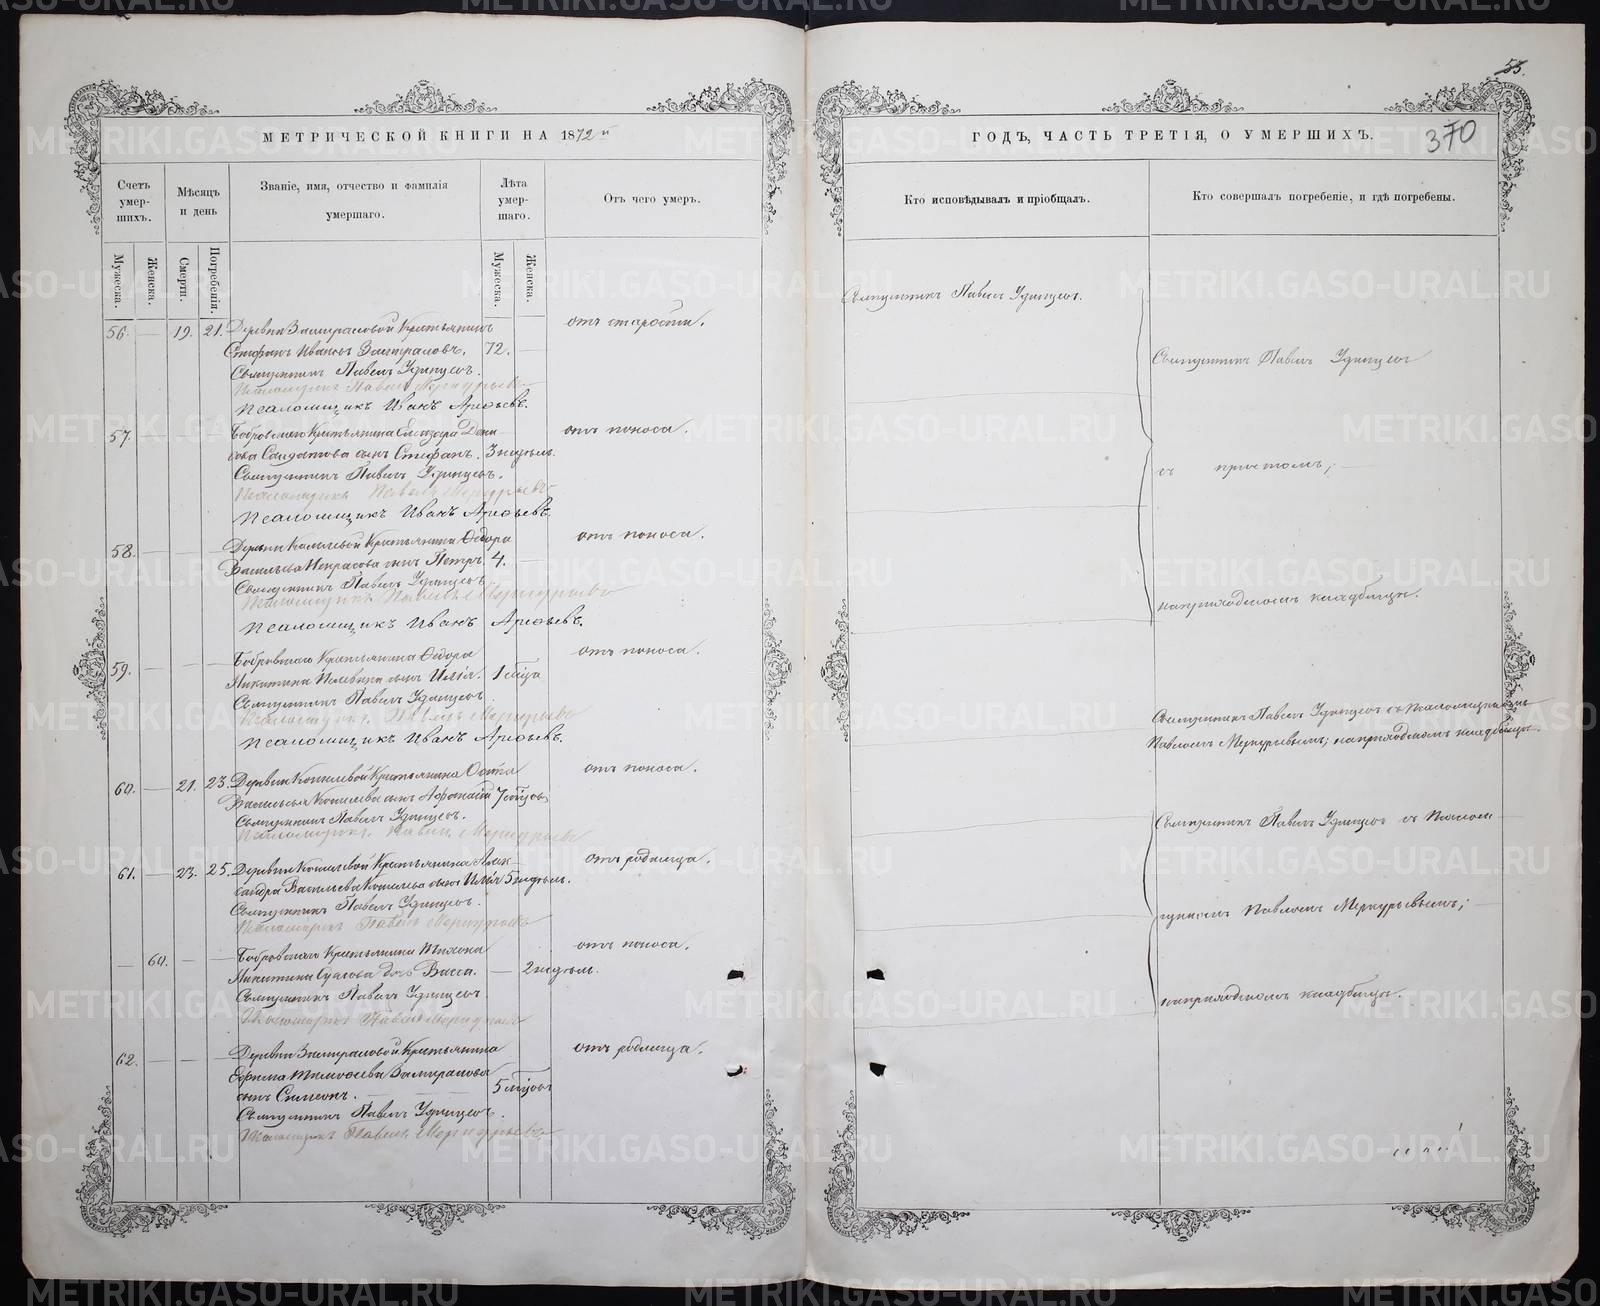 55.
370
МЕТРИЧЕСКОЙ КНИГИ НА 1872 й
ГОДЪ, ЧАСТЬ ТРЕТІЯ, О УМЕРШИХЪ.
Счетъ умер-шихъ.
Мѣсяцъ и день
Званіе, имя, отчество и фамилія умершаго.
Лѣта умер-шаго.
Отъ чего умеръ.
Кто исповѣдывалъ и пріобщалъ.
Кто совершалъ погребеніе, и гдѣ погребены.
Мужеска.
Женска.
Смерти.
Погребенія.
Мужеска.
Женска.
56. — 19. 21. Деревни Замираловой Крестьянинъ
Стефанъ Ивановъ Замираловъ. 72. —
отъ старости.
Священникъ Павелъ Удинцовъ.
Псаломщикъ Павелъ Меркурьевъ
Псаломщикъ Иванъ Арефьевъ.
57. — — — Бобровскаго Крестьянина
сынъ Стефанъ. 3 недѣль.
отъ поноса.
Священникъ Павелъ Удинцовъ.
Псаломщикъ Павелъ Меркурьевъ
Псаломщикъ Иванъ Арефьевъ.
58. — — — Деревни Крестьянина Ѳедора
Васильева Некрасова сынъ Петръ 4. —
отъ поноса.
Священникъ Павелъ Удинцовъ.
Псаломщикъ Павелъ Меркурьевъ
Псаломщикъ Иванъ Арефьевъ.
59. — — — Бобровскаго Крестьянина Ѳедора
Никитина сынъ Илія. 1 мѣсяца
отъ поноса.
Священникъ Павелъ Удинцовъ
Псаломщикъ Павелъ Меркурьевъ
Псаломщикъ Иванъ Арефьевъ.
60. — 21. 23. Деревни Кошелевой Крестьянина
Васильева Кошелева сынъ Афанасій 7 мѣсяцовъ
отъ поноса.
Священникъ Павелъ Удинцовъ.
Псаломщикъ Павелъ Меркурьевъ
61. — 23. 25. Деревни Кошелевой Крестьянина Алек-
сандра Васильева Кошелева сынъ Илія 5 недѣль.
отъ родимца.
Священникъ Павелъ Удинцовъ.
Псаломщикъ Павелъ Меркурьевъ
— 60. — — Бобровскаго Крестьянина Тихона
Никитина дочь Васса. — 2 недѣль.
отъ поноса.
Священникъ Павелъ Удинцовъ
Псаломщикъ Павелъ Меркурьевъ
62. — — — Деревни Замираловой Крестьянина
Ефима Тимофеева Замиралова
сынъ Симеонъ. 5 мѣсяцовъ
отъ родимца.
Священникъ Павелъ Удинцовъ.
Псаломщикъ Павелъ Меркурьевъ
Священникъ Павелъ Удинцовъ.
Священникъ Павелъ Удинцовъ
съ причтомъ;
на приходскомъ кладбищѣ.
Священникъ Павелъ Удинцовъ съ псаломщикомъ
Павломъ Меркурьевымъ; на приходскомъ кладбищѣ.
Священникъ Павелъ Удинцовъ съ псалом-
щикомъ Павломъ Меркурьевымъ;
на приходскомъ кладбищѣ.
METRIKI.GASO-URAL.RU